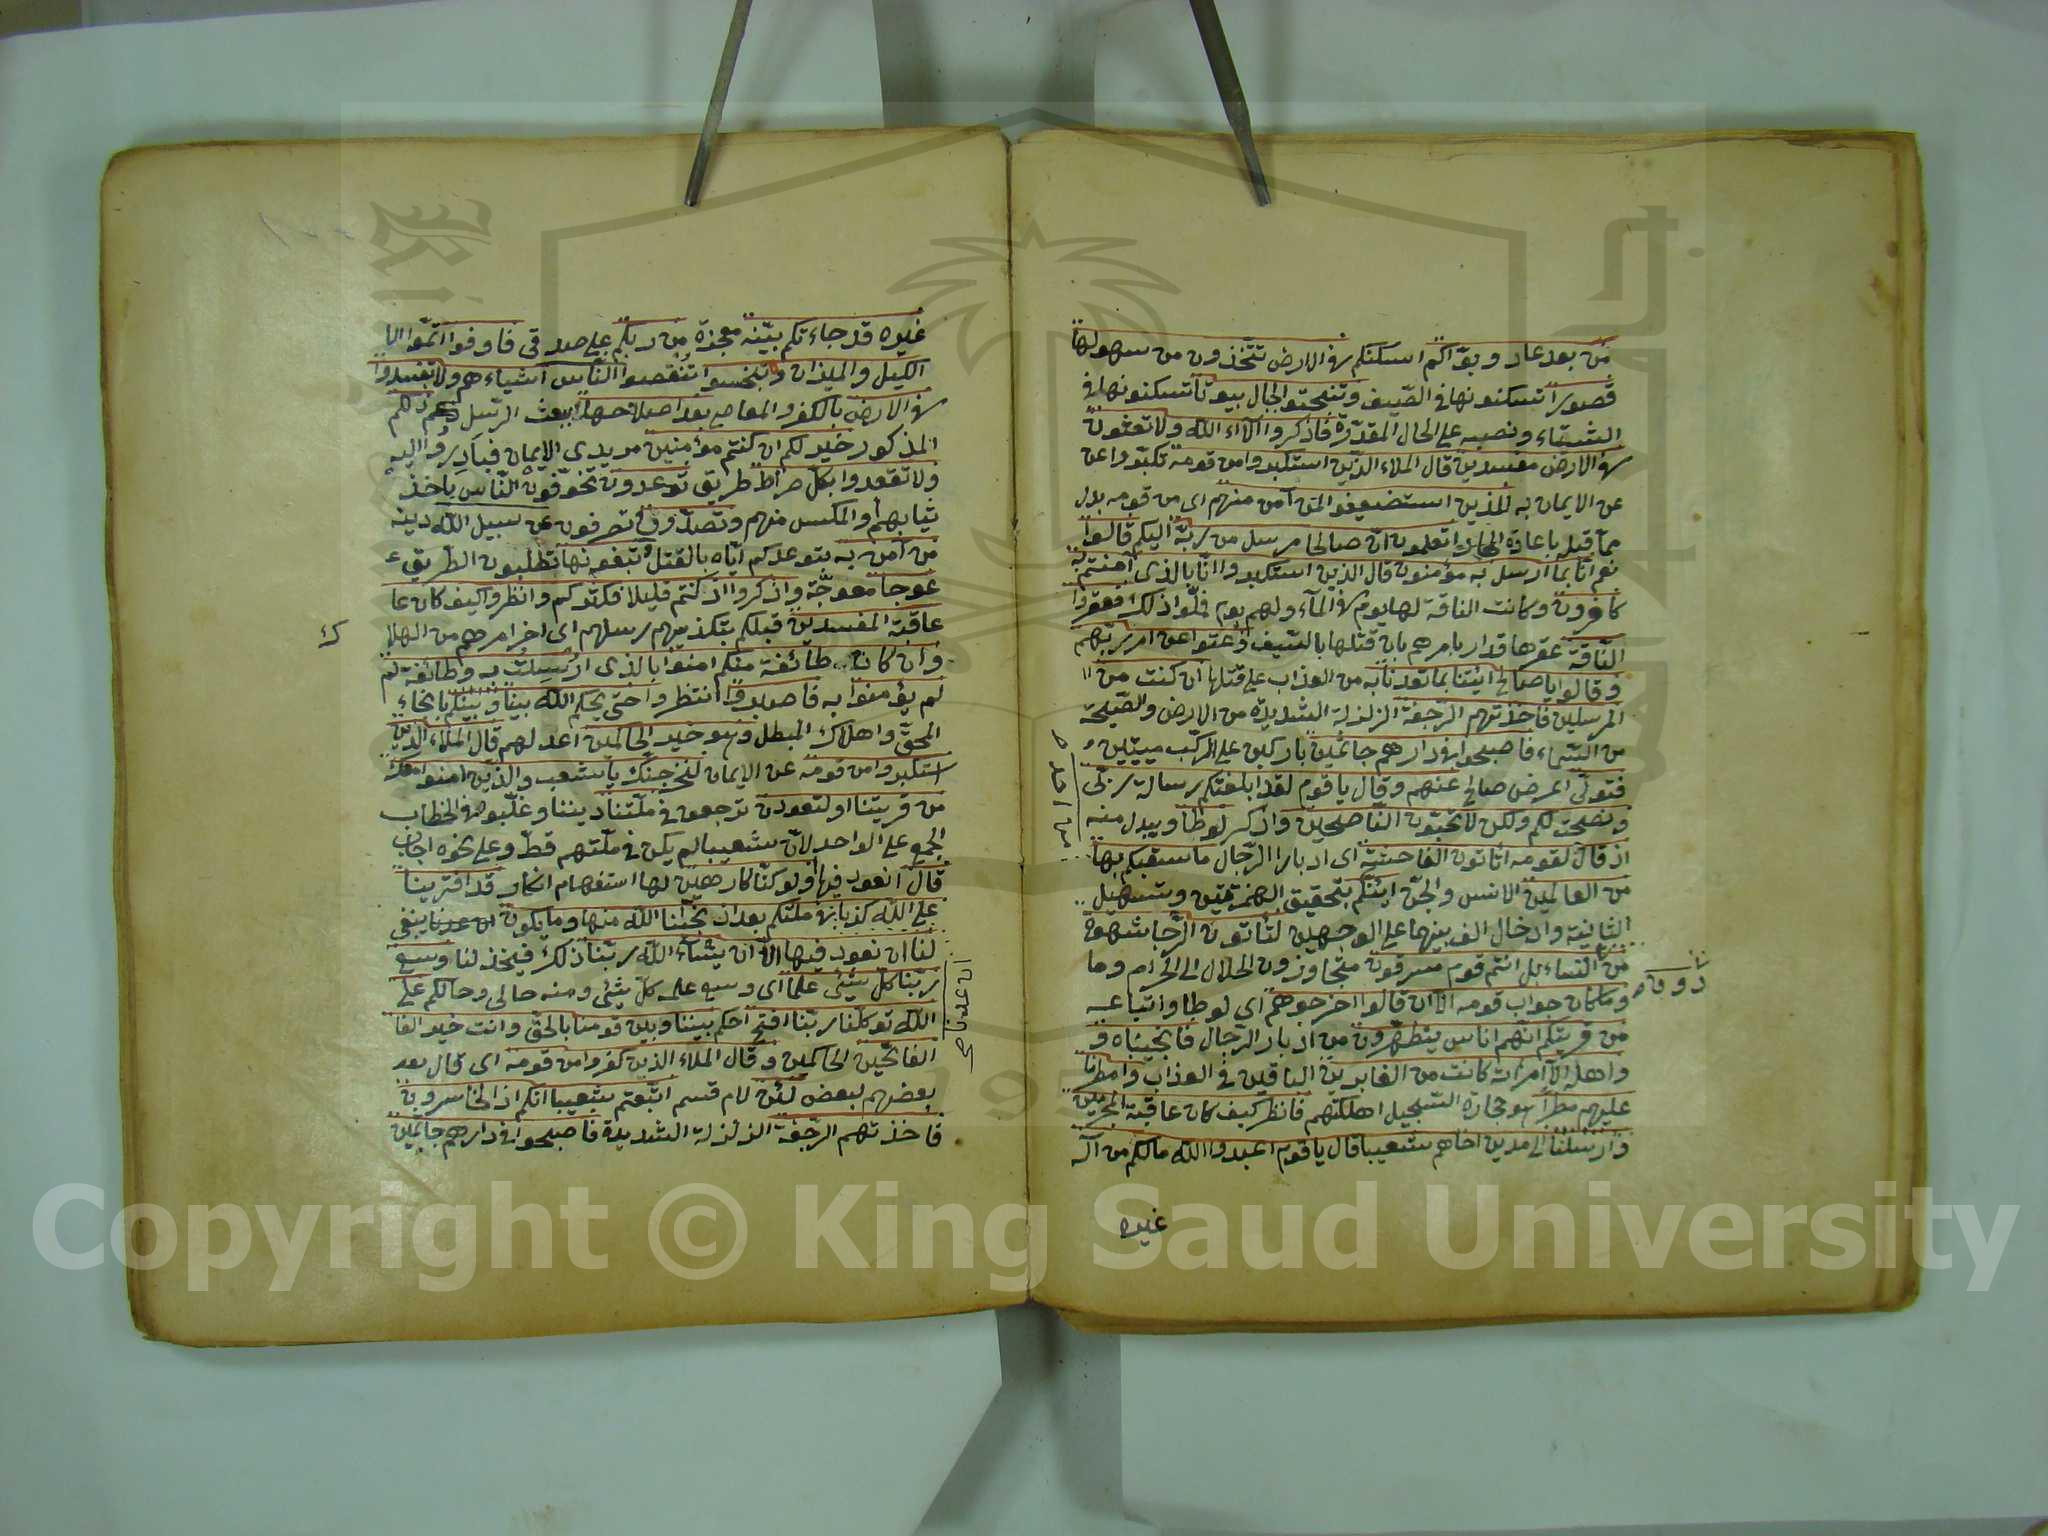 من بعد عاد وبوّاكم اسكنكم في الارض تتخذون من سهولها
قصورا تسكنونها في الصيف وتنحتوا لجبال بيوتا تسكنونها في
الشتاء ونصبه على الحال المقدّرة فاذكروا آلاء الله ولا تعثون
في الارض مفسدين قال الملاء الذين استكبروا من قومه تكبّروا عن
عن الايمان به للذين استضعفوا لمن آمن منهم اى من قومه بدل
ممّا قبله باعادة الجار اتعلمون انّ صالحا مرسل من ربّه اليكم قالوا
نعم انّا بما ارسل به مؤمنون قال الذين استكبروا انّا بالذى آمنتم به
كافرون وكانت الناقة لها يوم في المآء ولهم يوم فملّوا ذلك فعقروا
النّاقة عقرها قدار بامرهم بان قتلها بالسّيف وعتوا عن امر ربّهم
وقالوا يا صالح ائتنا بما تعدنا به من العذاب على قتلها ان كنت من
المرسلين فاخذتهم الرجفة الزلزلة الشديدة من الارض والصّيحة
من السّماء فاصبحوا في دارهم جاثمين باركين على الركب ميتين
فتولّى اعرض صالح عنهم وقال يا قوم لقد ابلغتكم رسالة ربّى
ونصحت لكم ولكن لا تحبّون النّاصحين واذكر لوطا ويبدل منه
اذ قال لقومه اتاتون الفاحشة اى ادبار الرّجال ما سبقكم بها
من العالمين الانس والجنّ ائنّكم بتحقيق الهمزتين وتسهيل
الثانية وادخال الف بينهما على الوجهين لتاتون الرّجا شهوة
من النساء بل انتم قوم مسرفون متجاوزون الحلال الى الحرام وما
وما كان جواب قومه الا ان قالوا اخرجوهم اى لوطا واتباعه
من قريتكم انّهم اناس يتطهّرون من ادبار الرّجال فانجيناه و
واهله الّا امرأته كانت من الغابرين الباقين في العذاب وامطرنا
عليهم مطرا هو حجارة السّجيل اهلكتهم فانظر كيف كان عاقبة المجرمين
وارسلنا الى مدين اخاهم شعيبا قال يا قوم اعبدوا الله ما لكم من اله
غيره
غيره قد جاءتكم بيّنة معجزة من ربّكم على صدقى فاوفوا اتمّوا ال
الكيل والميزان وتبخسوا تنقصوا النّاس اشياءهم ولا تفسدوا
في الارض بالكفر والمعاصى بعد اصلاحها ببعث الرّسل ذلكم
المذكور خير لكم ان كنتم مؤمنين مريدى الايمان فبادروا اليه
ولا تقعدوا بكلّ صراط طريق توعدون تخوّفون النّاس باخذ
ثيابهم او المكس منهم وتصدّون تصرفون عن سبيل الله دينه
من آمن به بتوعدكم ايّاه بالقتل وتبغونها تطلبون الطّريق
عوجا معوجّة واذكروا اذ كنتم قليلا فكثركم وانظروا كيف كان عا
عاقبة المفسدين قبلكم بتكذيبهم رسلهم اى اخر امرهم من الهلا
ك
وان كان طائفة منكم امنوا بالذى ارسلت به وطائفة لم
لم يؤمنوا به فاصبروا انتظروا حتى يحكم الله بيننا وبينكم بانجاء
المحقّ واهلاك المبطل وهو خير الحاكمين اعدلهم قال الملاء الذين
استكبروا من قومه عن الايمان لنخرجنّك يا شعيب والذين امنوا معك
من قريتنا او لتعودن ترجعون في ملّتنا ديننا وغلّبوا في الخطاب
الجمع على الواحد لانّ شعيبا لم يكن في ملّتهم قطّ وعلى نحوه اجاب
قال انعود فيها ولو كنّا كارهين لها استفهام انكار قد افترينا
على الله كذبا ان عدنا في ملّتكم بعد اذ نجّانا الله منها وما يكون ينبغى
لنا ان نعود فيها الّا ان يشاء الله ربّنا ذلك فيخذلنا وسع
ربّنا كلّ شيئ علما اى وسع علمه كلّ شيئ ومنه حالى وحالكم على
الله توكّلنا ربّنا افتح احكم بيننا وبين قومنا بالحقّ وانت خير الفا
الفاتحين الحاكمين وقال الملاء الذين كفروا من قومه اى قال بعد
بعضهم لبعض لئن لام قسم اتبعتم شعيبا انّكم اذا لخاسرون
فاخذتهم الرّجفة الزلزلة الشديدة فاصبحوا في دارهم جاثمين
Copyright © King Saud University